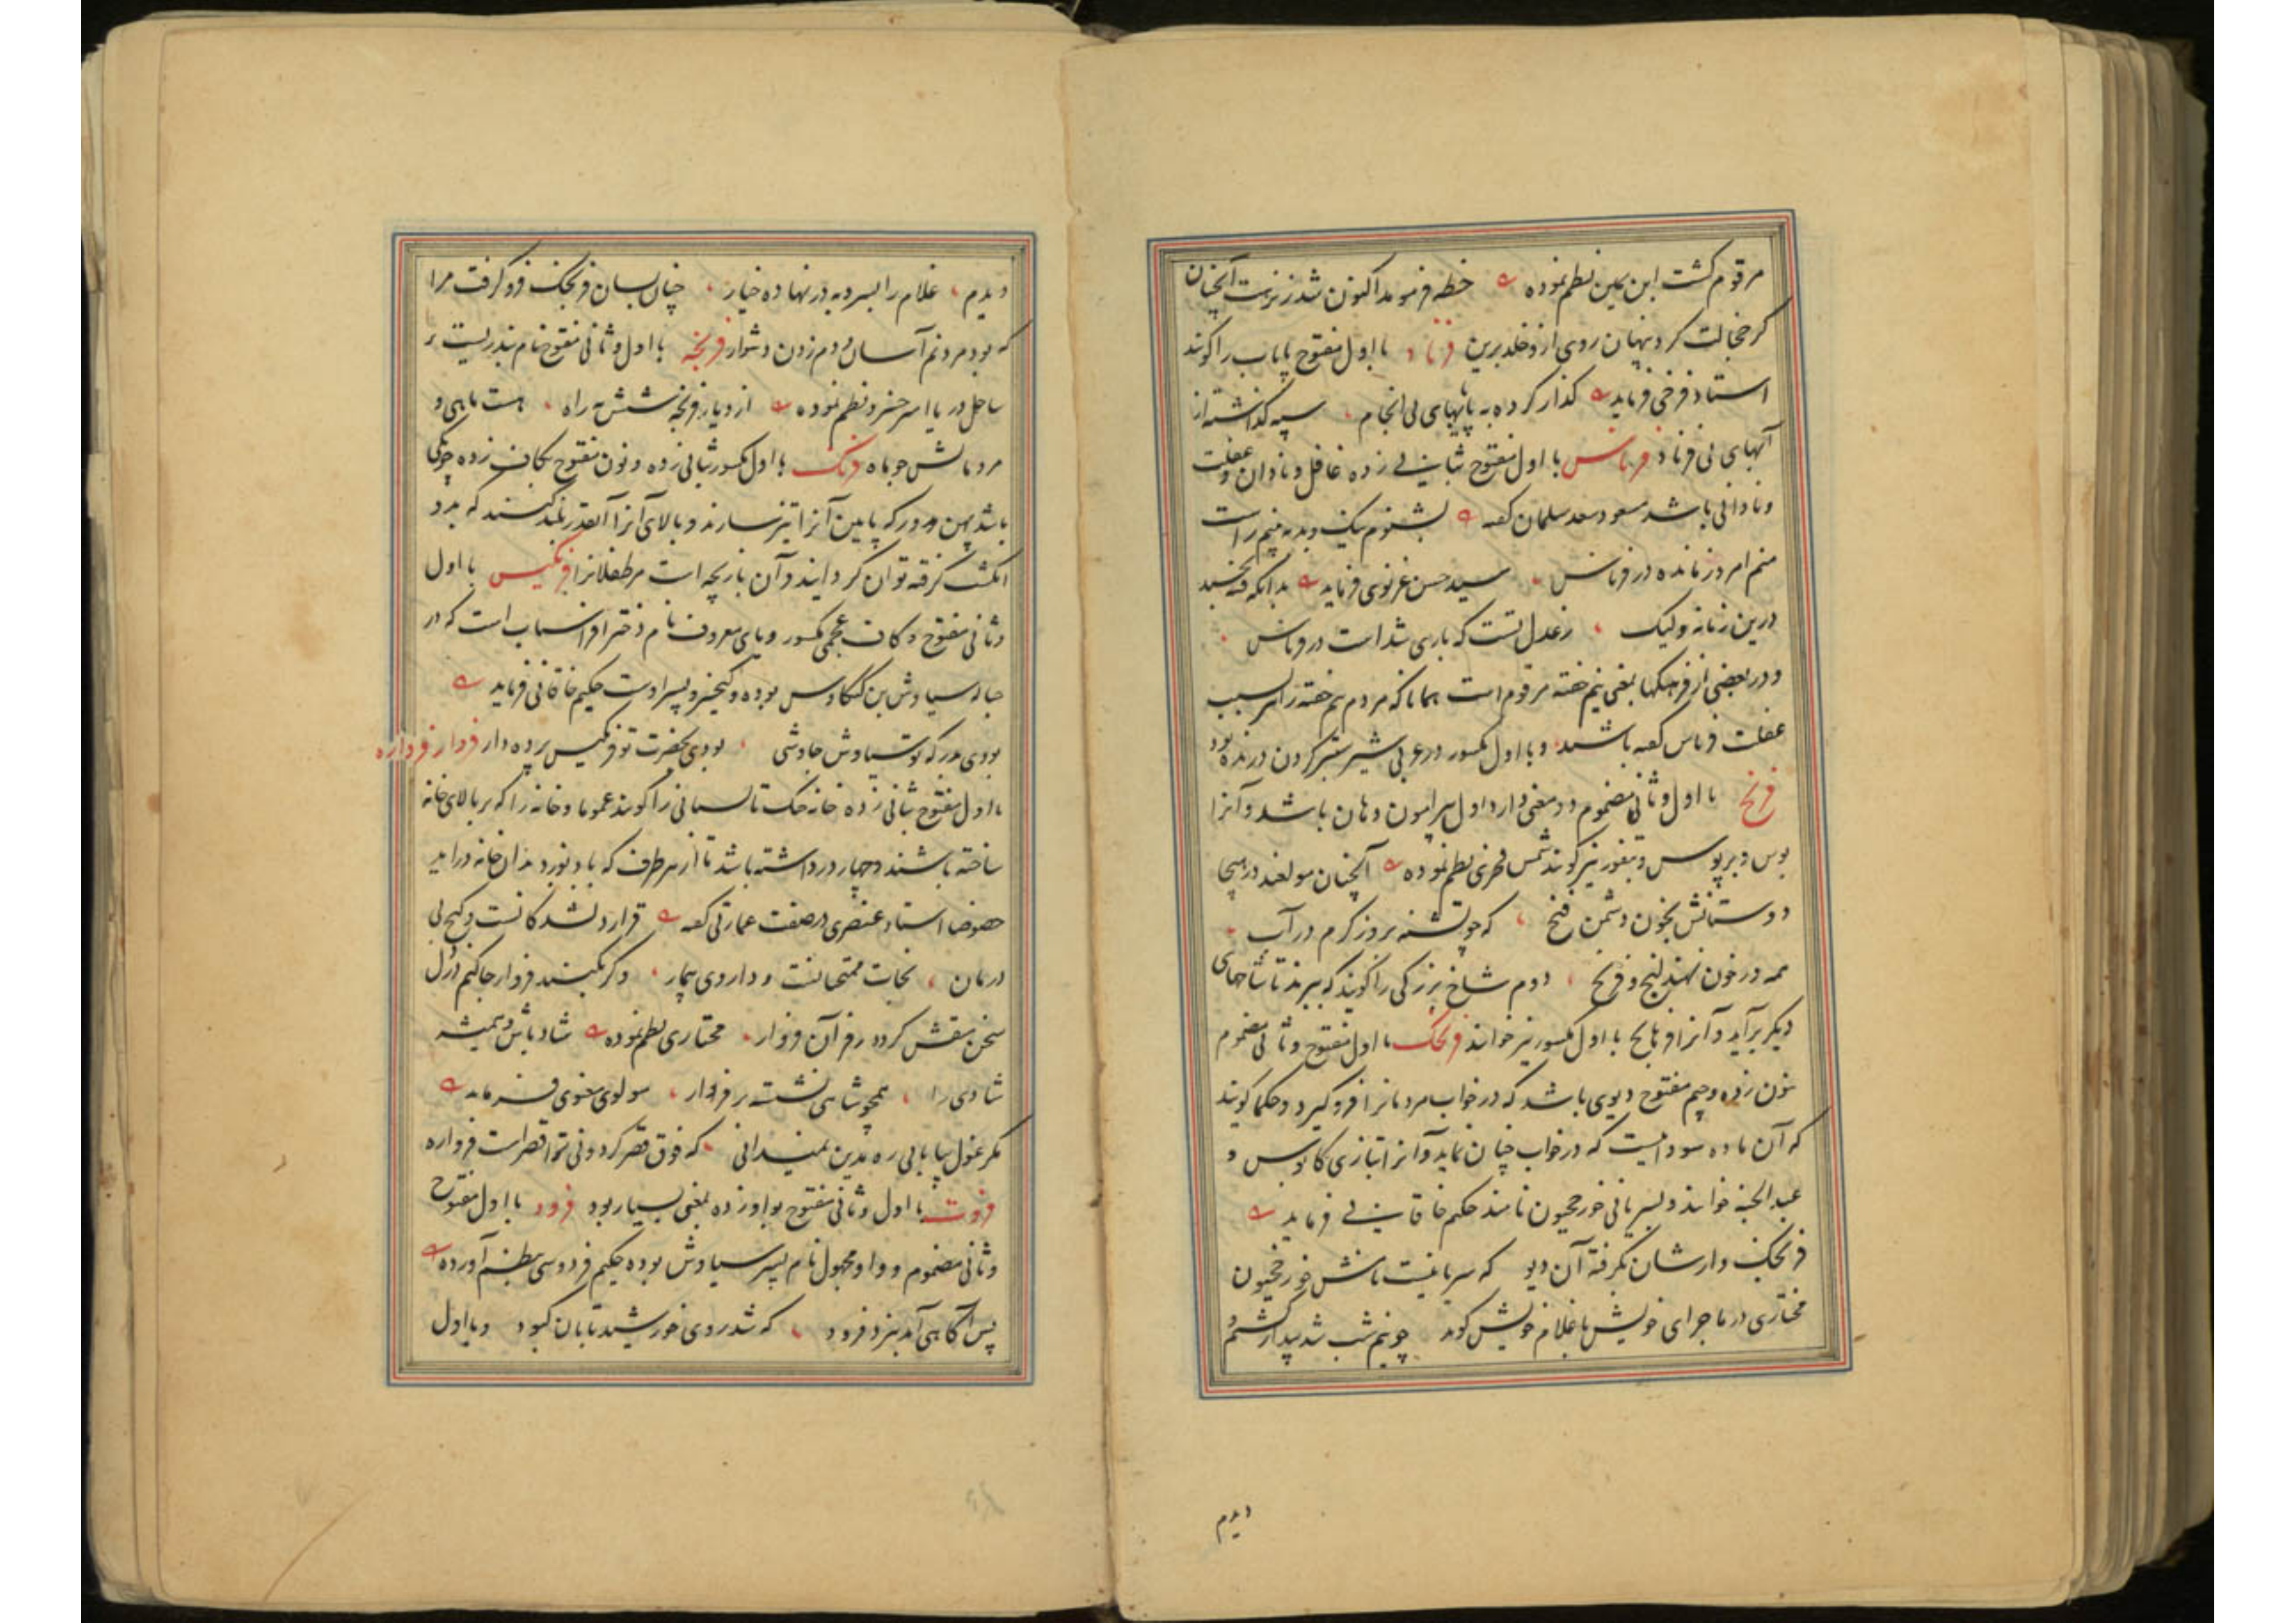 مرقوم گشت ابن یمین نظم نموده خطه فرنمود اکنون شد زنزهت آنچنان
کز خجالت کرد پنهان روی ازو خلد برین فرناد با اول مفتوح پایاب را گویند
استاد فرخی فرماید گذار کرده به پایهای بی انجام سپه گذاشته از
آبهای بی فرناد فرناس با اول مفتوح بثانی زده غافل و نادان و غفلت
و نادانی باشد مسعود سعد سلمان گفته بشنوم نیک و بد نه بینم راست
منم امروز مانده در فرناس سید حسن غزنوی فرماید بدانکه فتنه نخسبد
درین زمانه ولیک زعدل تست که باری شداست در فرناس
و در بعضی از فرهنگها بمعنی نیم خفته مرقوم است همانا که مردم نیم خفته را بر سبب
غفلت فرناس گفته باشند و با اول مکسور در عربی شیر ستبر گردن درنده بود
فرنج با اول و ثانی مضموم دو معنی دارد اول پیرامون دهان باشد و آنرا
بوس و برپوس و بتفوز نیز گویند شمس فخری نظم نموده آنچنان مولعند در هیجا
دوستانش بخون دشمن فنج که چو تشنه بروز گرم در آب
همه در خون نهند لنج و فرنج دوم شاخ بزرگی را گویند که ببرند تا شاخهای
دیگر برآید و آنرا فرناج با اول مکسور نیز خوانند فرنجک با اول مفتوح و ثانی مضموم
بنون زده و جیم مفتوح دیوی باشد که در خواب مردمانرا فرو گیرد و حکما گویند
که آن ماده سوداست که در خواب چنان نماید و آنرا بتازی کابوس و
عبد الجنه خوانند و بسریانی خورخجیون نامند حکیم خاقانی فرماید
فرنجک وارشان بگرفته آن دیو که سریانیست نامش خورخجیون
مختاری در ماجرای خویش با غلام خویش گوید چو نیم شب شد بیدار گشتم و
دیدم
دیدم غلام را بسر و به در نهاده خیار چنان بسان فرنجک فرو گرفت مرا
که بود مردنم آسان و دم زدن دشوار فرنجه با اول و ثانی مفتوح نام بندریست بر
ساحل دریا امیر خسرو نظم نموده از دیار فرنجه شش مه راه هست ماهی و
مردمانش چو ماه فرنک با اول مکسور بثانی زده و نون مفتوح بکاف زده چوبکی
باشد پهن و مدور که پایین آنرا تیز سازند و بالای آنرا آنقدر بلند کنند که بدو
انگشت گرفته توان گردانید و آن بازیچه است مرطفلانرا فرنگیس با اول
و ثانی مفتوح و کاف عجمی مکسور و یای معروف نام دختر افراسیاب است که در
حباله سیاوش بن کیکاوس بوده و کیخسرو پسر اوست حکیم خاقانی فرماید
بودی بدرگه تو سیاوش جاوشی بودی بحضرت تو فرنگیس پرده دار فروار فرواره
با اول مفتوح بثانی زده خانه خنک تابستانی را گویند عموما و خانه را که بر بالای خانه
ساخته باشند و چهار در داشته باشد تا از هر طرف که باد بوزد بدان خانه درآید
خصوصا استاد عنصری در صفت عمارتی گفته قرار دلشدگانست و گنج بی
درمان نجات ممتحانست و داروی بیمار وگر بگنبد فروار جا کنم ز دل
سخن بنقش گردد در قرآن فروار مختاری نظم نموده شاد باش و همیشه
شادی را همچو شاهی نشسته بر فروار مولوی معنوی فرماید
مگر غول بیابانی ره بدین نمیدانی که فوق قصر گردونی ترا قصر است فرواره
فروت با اول و ثانی مفتوح بواو زده بمعنی بسیار بود فرود با اول مفتوح
و ثانی مضموم و واو مجهول نام پسر سیاوش بوده حکیم فردوسی بنظم آورده
پس آگاهی آمد بنزد فرود که شد روی خورشید تابان کبود و با اول